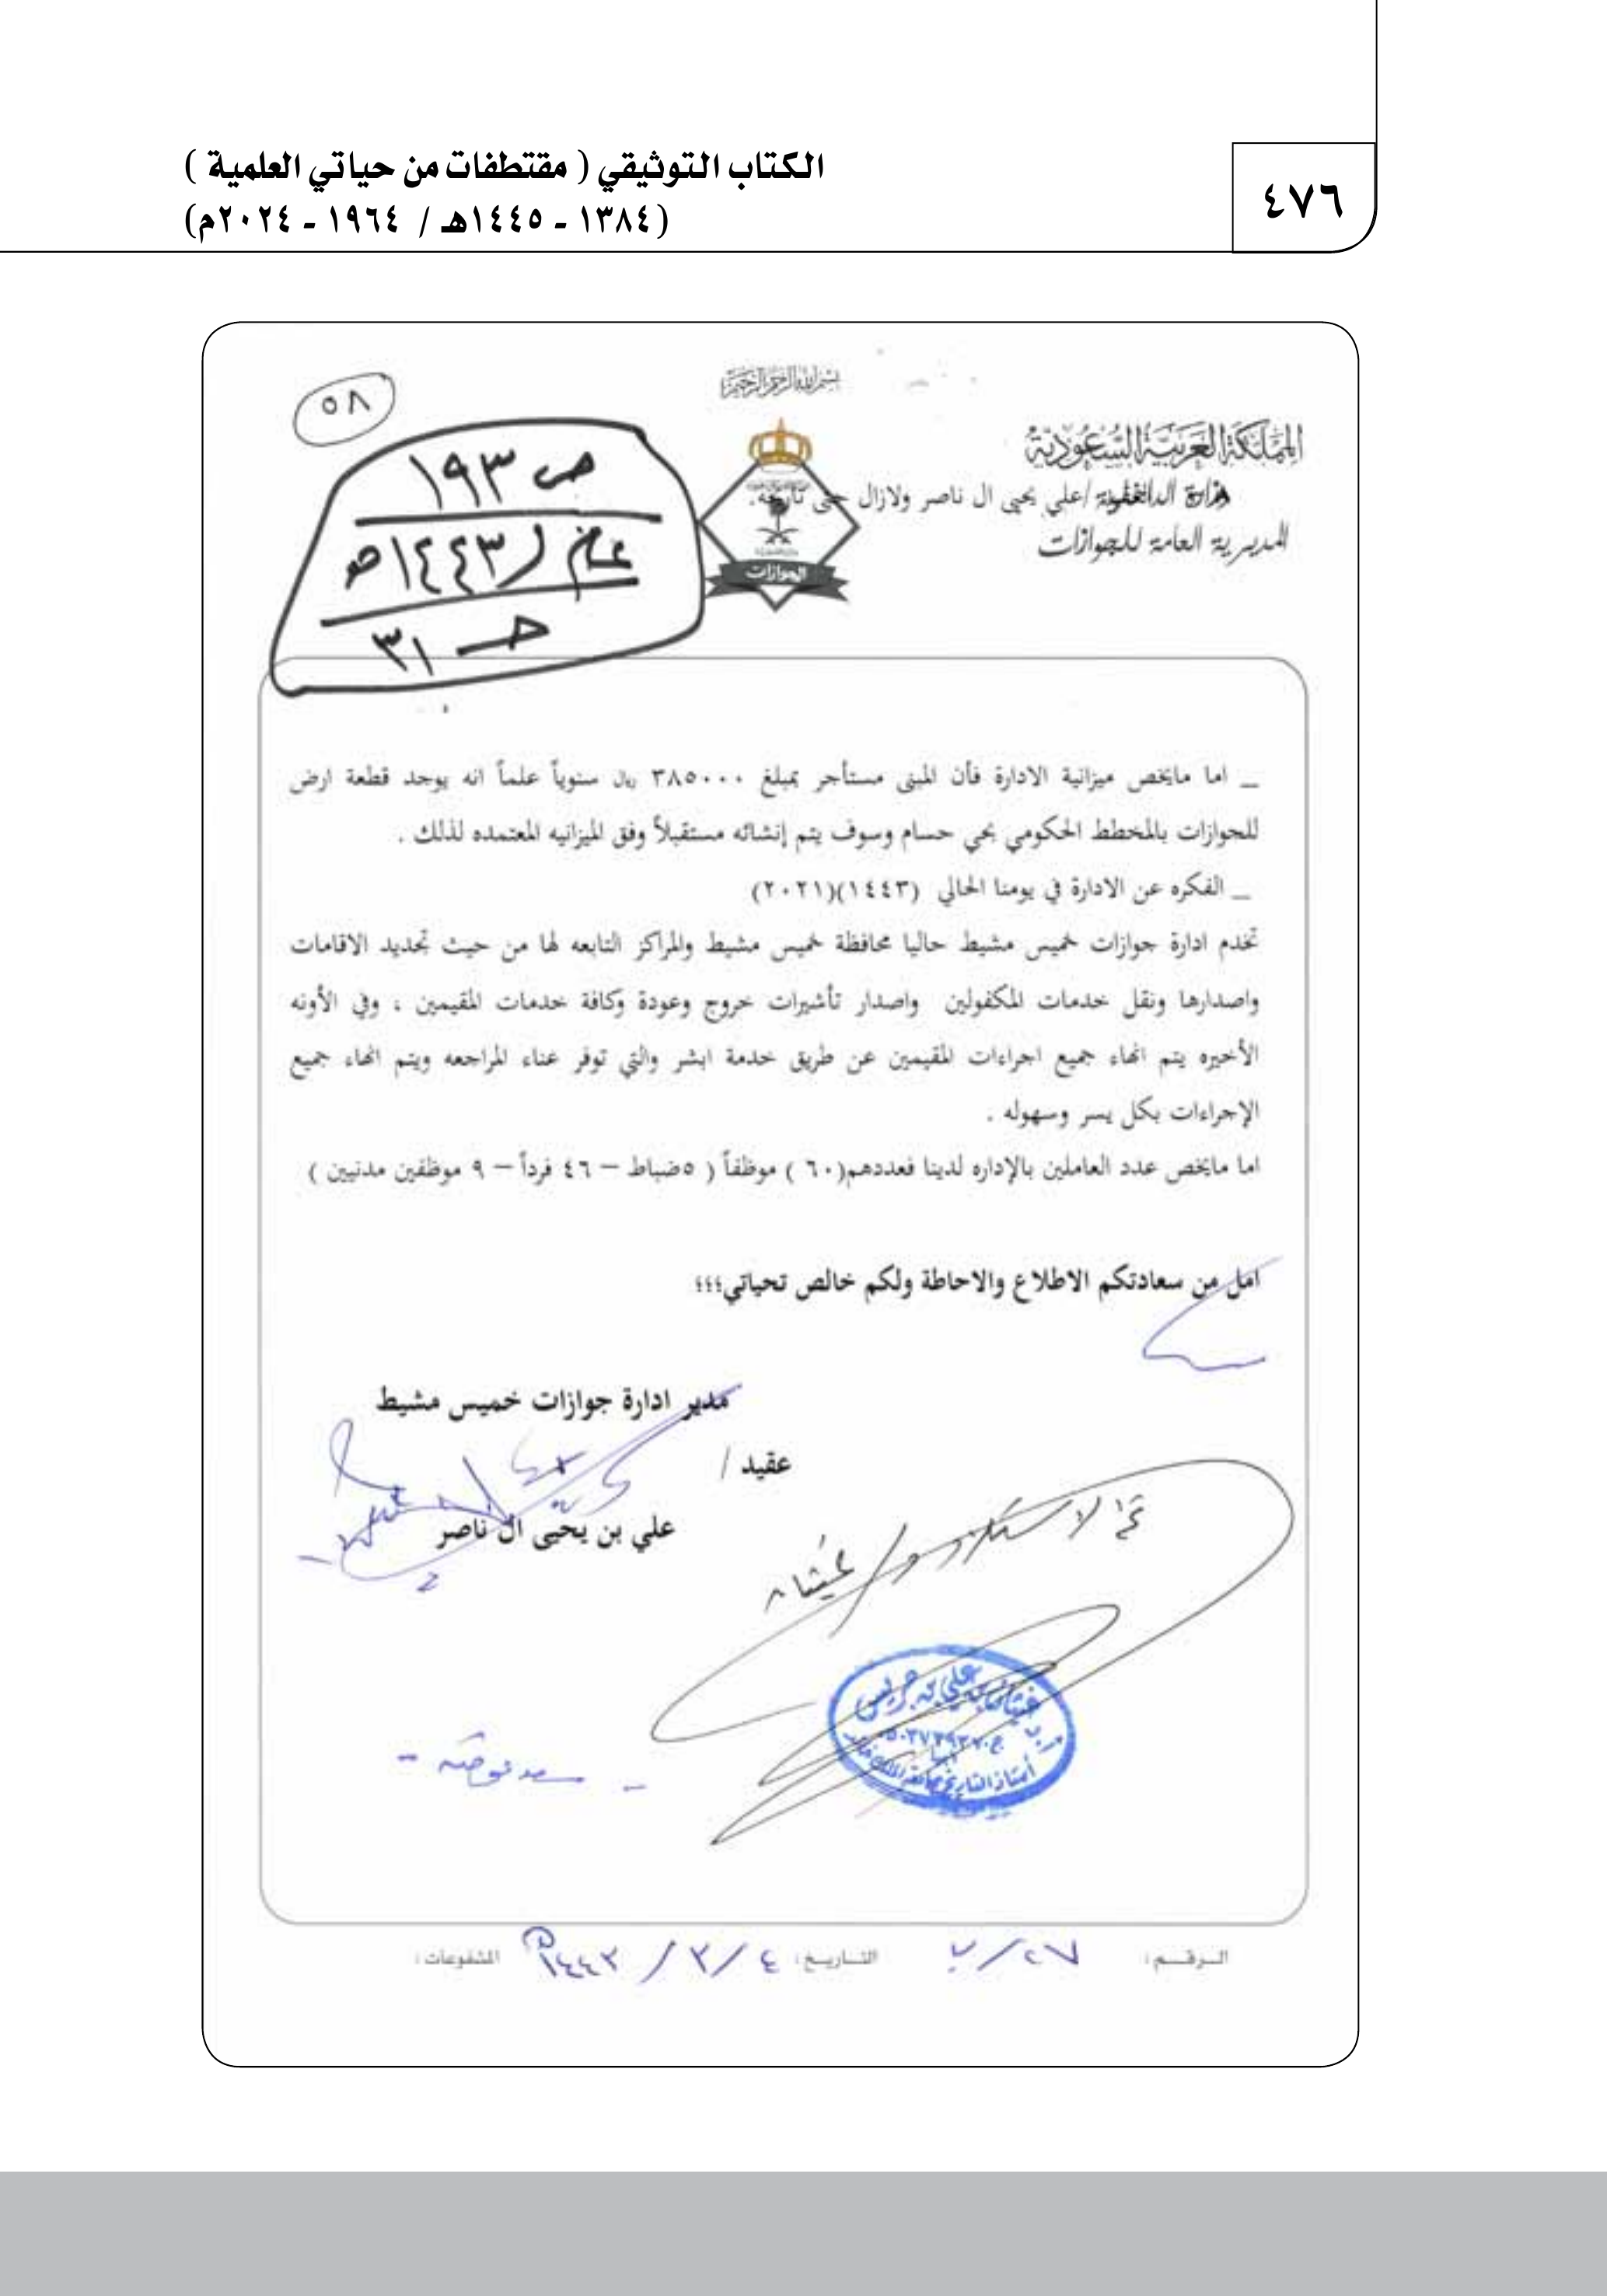 ٤٧٦
الكتاب التوثيقي ( مقتطفات من حياتي العلمية )
(١٣٨٤ - ١٤٤٥هـ / ١٩٦٤ - ٢٠٢٤م)
بسم الله الرحمن الرحيم
٥٨
المملكة العربية السعودية
وزارة الداخلية /علي يحيى ال ناصر ولازال حتى تاريخه.
المديرية العامة للجوازات
الجوازات
ص ١٩٣
١٤٤٣هـ
حـ ٣١
_ اما مايخص ميزانية الادارة فأن المبنى مستأجر بمبلغ ٣٨٥٠٠٠ ريال سنوياً علماً انه يوجد قطعة ارض
للجوازات بالمخطط الحكومي بحي حسام وسوف يتم إنشائه مستقبلاً وفق الميزانيه المعتمده لذلك .
_ الفكره عن الادارة في يومنا الحالي (١٤٤٣)(٢٠٢١)
تخدم ادارة جوازات خميس مشيط حاليا محافظة خميس مشيط والمراكز التابعه لها من حيث تجديد الاقامات
واصدارها ونقل خدمات المكفولين واصدار تأشيرات خروج وعودة وكافة خدمات المقيمين ، وفي الأونه
الأخيره يتم انهاء جميع اجراءات المقيمين عن طريق خدمة ابشر والتي توفر عناء المراجعه ويتم انهاء جميع
الإجراءات بكل يسر وسهوله .
اما مايخص عدد العاملين بالإداره لدينا فعددهم(٦٠ ) موظفاً ( ٥ضباط – ٤٦ فرداً – ٩ موظفين مدنيين )
امل من سعادتكم الاطلاع والاحاطة ولكم خالص تحياتي؛؛؛
مدير ادارة جوازات خميس مشيط
عقيد /
علي بن يحيى ال ناصر
غيثان بن علي بن جريس
أستاذ التاريخ بجامعة الملك خالد
الـرقـم : ٢٧/ب التـاريـخ : ٤ / ٣ / ١٤٤٣هـ المشفوعات :